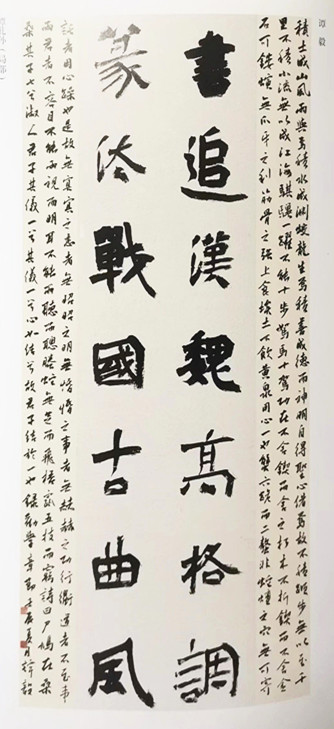 谭 毅
積土成山風雨興焉積水成淵蛟龍生焉積善成德而神明自得聖心備焉故不積跬步無以至千
里不積小流無以成江海騏驥一躍不能十步駑馬十駕功在不舍鍥而舍之朽木不折鍥而不舍金
石可鏤螾無爪牙之利筋骨之強上食埃土下飲黃泉用心一也蟹六跪而二螯非蛇蟺之穴無可寄
書追漢魏高格調
篆法戰國古曲風
託者用心躁也是故無冥冥之志者無昭昭之明無惛惛之事者無赫赫之功行衢道者不至事
兩君者不容目不能兩視而明耳不能兩聽而聰螣蛇無足而飛梧鼠五技而窮詩曰尸鳩在桑
桑其子七兮淑人君子其儀一兮其儀一兮心如結兮故君子結於一也錄勸學章節